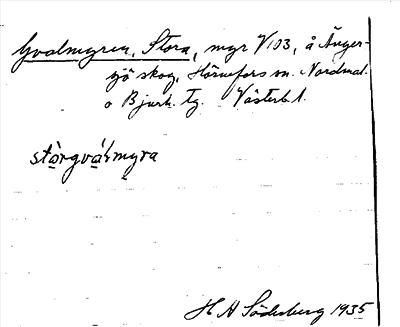 Gvalmyren, Stora, myr V 103, å Ånger-
sjö skog, Hörnefors sn. Nordmal.
o Bjurh. tg. Västerb. l.
stòrgválmyra
H A Söderberg 1935